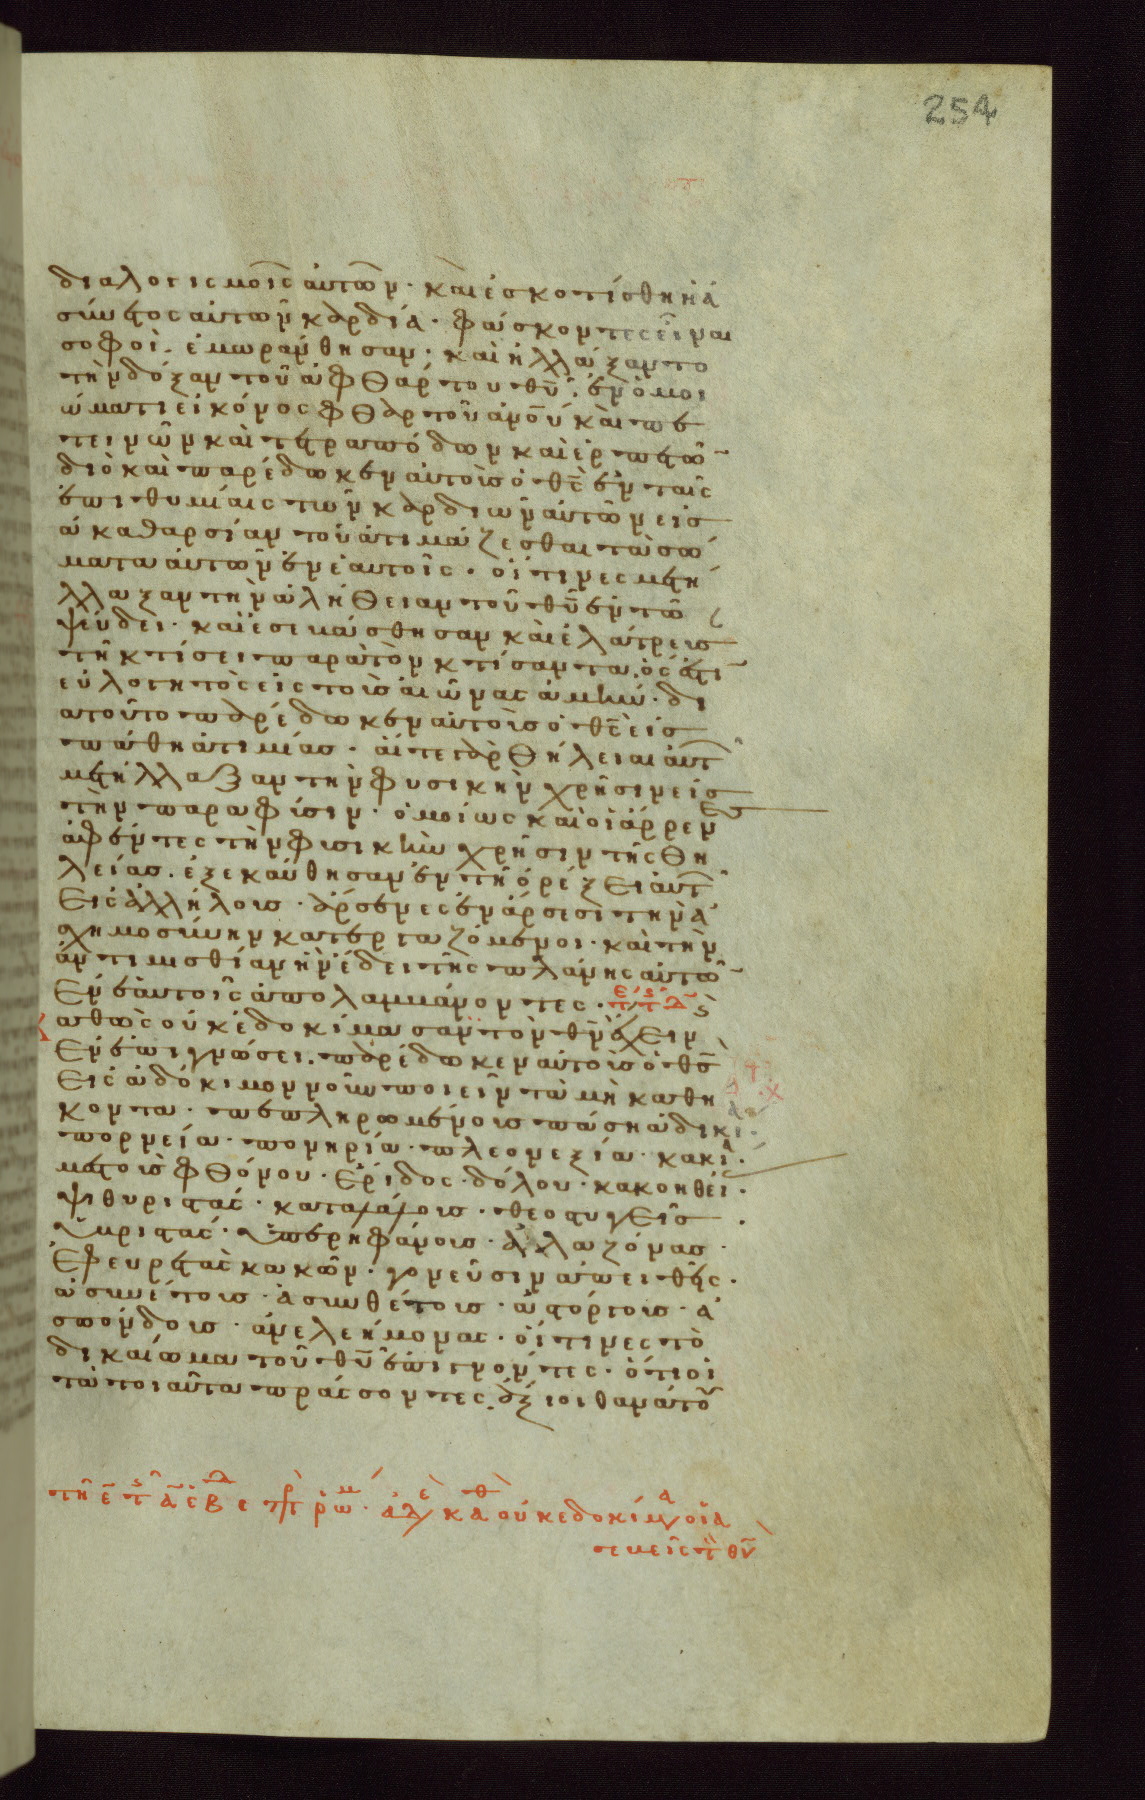 254
διαλογισμοῖς αὐτῶν· καὶ ἐσκοτίσθη ἡ ἀ
σύνετος αὐτῶν καρδία· φάσκοντες εἶναι
σοφοὶ· ἐμωράνθησαν· καὶ ἠλλάξαντο
τὴν δόξαν τοῦ ἀφθάρτου θῦ· ἐν ὁμοι
ώματι εἰκόνος φθαρτοῦ ἀνοῦ καὶ πε
τεινῶν καὶ τετραπόδων καὶ ἑρπετῶ
διὸ καὶ παρέδωκεν αὐτοὺς ὁ θς ἐν ταῖς
ἐπιθυμίαις τῶν καρδιῶν αὐτῶν εἰς
ἀκαθαρσίαν τοῦ ἀτιμάζεσθαι τὰ σώ
ματα αὐτῶν ἐν ἑαυτοῖς· οἵτινες μετή
λλαξαν τὴν ἀλήθειαν τοῦ θῦ ἐν τῶ
ψεύδει· καὶ ἐσεβάσθησαν καὶ ἐλάτρευσ
τῆ κτίσει παρὰ τὸν κτίσαντα· ὅς ἐστι
εὐλογητὸς εἰς τοὺς αἰῶνας ἀμήν· δι
α τοῦτο παρέδωκεν αὐτοὺς ὁ θς εἰς
πάθη ἀτιμίας· αἵ τε γὰρ θήλειαι αὐτ
μετήλλαξαν τὴν φυσικὴν χρῆσιν εἰς
τὴν παρα φύσιν· ὁμοίως καὶ οἱ ἄρρεν
ἀφέντες τὴν φυσικὴν χρῆσιν τῆς θη
λείας· ἐξεκαύθησαν ἐν τῆ ὀρέξει αὐτ
εἰς ἀλλήλους· ἄρσενες ἐν ἄρσεσι τὴν ἀ
σχημοσύνην κατεργαζόμενοι· καὶ τὴν
ἀντιμισθίαν ἣν ἔδει τῆς πλάνης αὐτῶ
ἐν ἑαυτοῖς ἀπολαμβάνοντες·
αθὼς οὐκ ἐδοκίμασαν τὸν θν ἔχειν
ἐν ἐπιγνώσει· παρέδωκεν αὐτοὺς ὁ θς
εἰς ἀδόκιμον νοῦν ποιεῖν τὰ μὴ καθή
κοντα· πεπληρωμένους πάση ἀδικί·
πορνεία· πονηρία· πλεονεξία· κακία·
μεστοὺς φθόνου· ἔριδος· δόλου· κακοηθεί·
ψιθυριστάς· καταλάλους· θεοστυγεῖς·
ὑβριστάς· ὑπερηφάνους· ἀλαζόνας·
ἐφευρετὰς κακῶν· γονεῦσιν ἀπειθεῖς·
ἀσυνέτους· ἀσυνθέτους· ἀστόργους· ἀ
σπόνδους· ἀνελεήμονας· οἵτινες τὸ
δικαίωμα τοῦ θῦ ἐπιγνόντες· ὅτι οἱ
τὰ τοιαῦτα πράσσοντες ἄξιοι θανάτου
οὐκ ἐδοκίμα